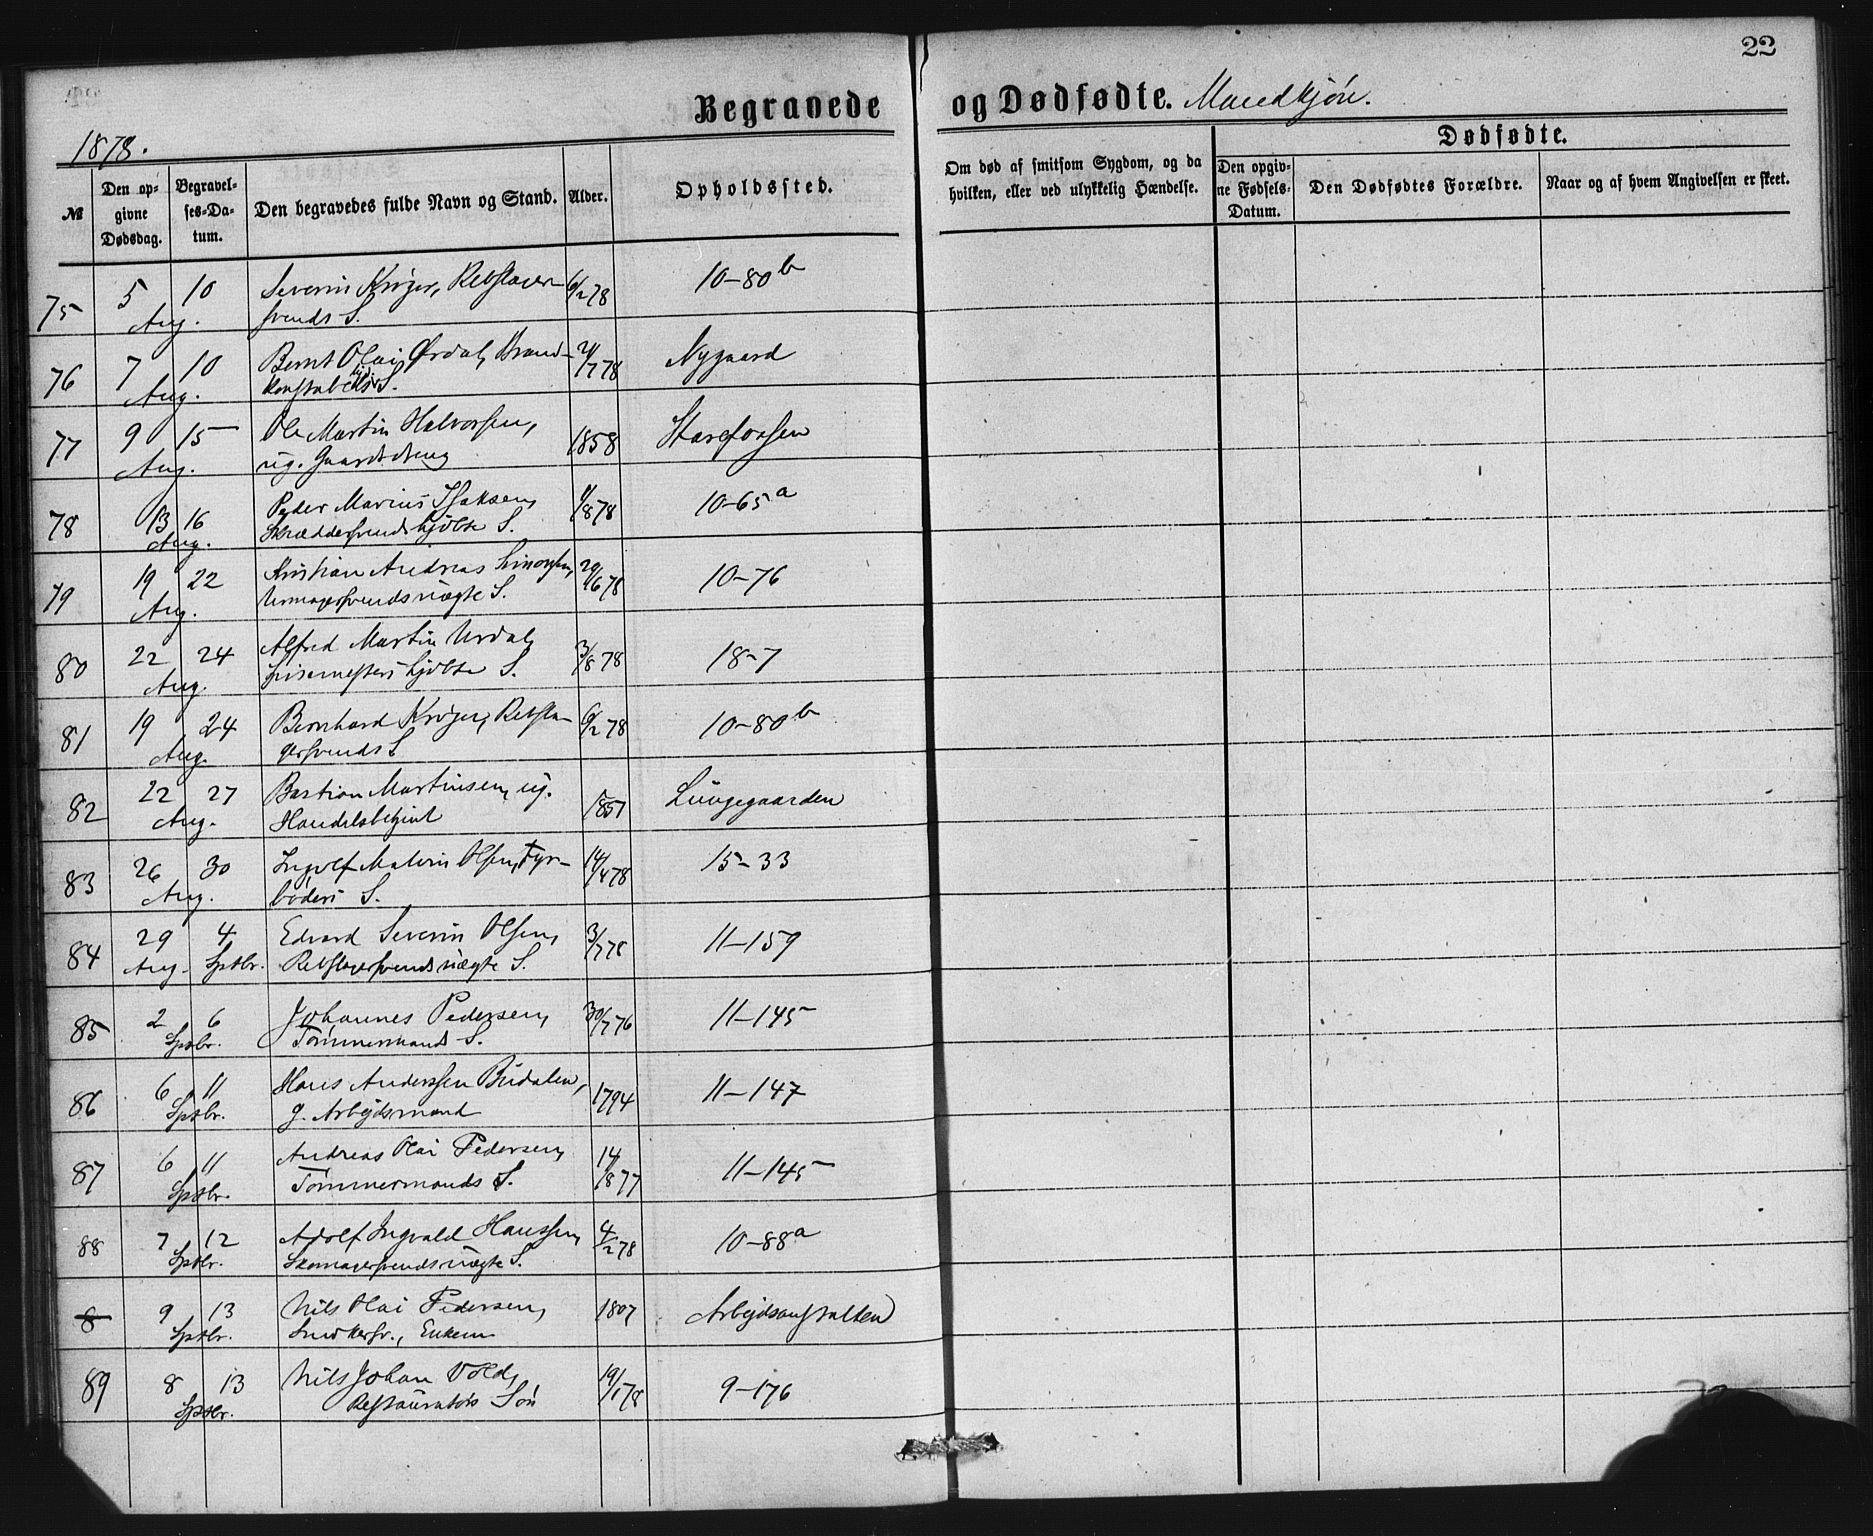 22
Begravede og Dødfødte. Mandkjøn.
1878.
Dødfødte.
№
Den opgivne Dødsdag.
Begravelses-Datum.
Den begravedes fulde Navn og Stand.
Alder.
Opholdssted.
Om død af smitsom Sygdom, og da hvilken, eller ved ulykkelig Hændelse.
Den opgivne Fødsels-Datum.
Den Dødfødtes Forældre.
Naar og af hvem Angivelsen er skeet.
75 5 10 Severin Krøger, Rebslager- 6/2 78 10-80b
Aug. svends S.
76 7 10 Bernt Olai Ørdal, Brand- 7 78 Nygaard
Aug. konstabels S.
77 9 15 Ole Martin Halvorsen, 1858 Starefossen
Aug. ug. Gaardsdreng
78 13 16 Peder Marius Isaksen, 8 78 10-65a
Aug. Skræddersvends S.
79 19 22 Kristian Andreas Simonsen, 29/6 78 10-76
Aug. Urmagersvends uægte S.
80 22 24 Alfred Martin Urdal, 3/8 78 18-7
Aug. S.
81 19 24 Bernhard Krøger, Rebsla- 6/2 78 10-80b
Aug. gersvends S
82 22 27 Bastian Martinsen, ug. 1857 Lungegaarden
Aug. Handelsbetjent
83 26 30 Ingolf Matern Olsen, Fyr- 14/4 78 15-33
Aug. bøders S.
84 29 4 Edvard Severin Olsen, 3/7 78 11-159
Aug. Sptbr. Rebslagersvends uægte S.
85 2 6 Johannes Pedersen, 30/7 76 11-145
Sptbr. Tømmermands S.
86 6 11 Hans Anderssen Budalen, 1794 11-147
Sptbr. g. Arbejdsmand
87 6 11 Andreas Olai Pedersen, 14/8 77 11-145
Sptbr. Tømmermands S.
88 7 12 Adolf Ingvald Hanssen, 4/2 78 10-88a
Sptbr. Skomagersvends uægte S.
8 9 13 Nils Olai Pedersen, 1807 Arbejdsanstalten
Sptbr. Snedkersv., Enkem
89 8 13 Nils Johan Vold, 19/1 78 9-176
Sptbr. Restauratørs Søn